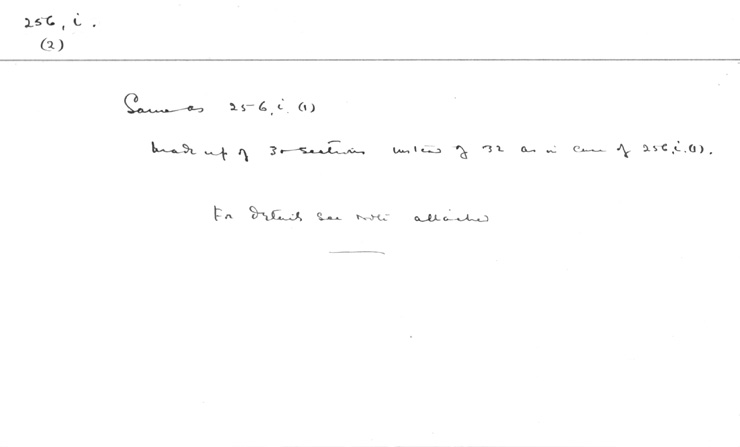 256, i.
(2)
Same as 256, i. (1)
Made up of 30 sections instead of 32 as in case of 256, i. (1).
For details see note attached